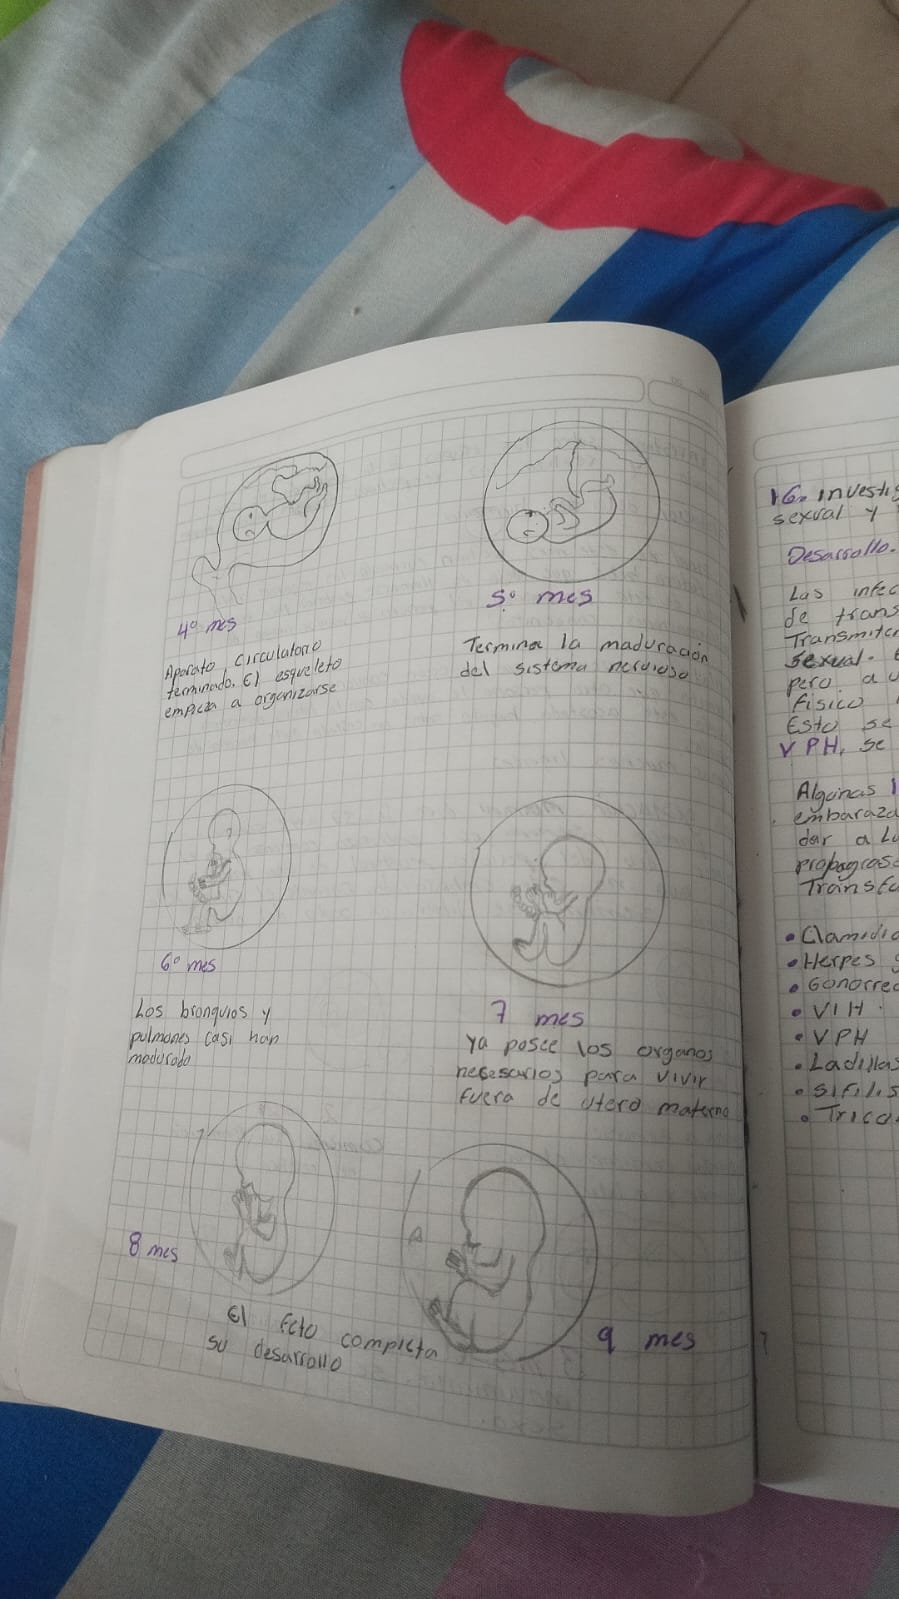 4º mes
Aparato, circulatorio
terminado. El esqueleto
empieza a organizarse
5.º mes
Termina la maduración
del sistema nervioso
6º mes
Los bronquios y
pulmones casi han
madurado
7 mes
ya posee los organos
necesarios para vivir
fuera de utero materno
8 mes
El feto completa
su desarrollo
9 mes
16. Investig
sexual y
Desarrollo.
Las infec
de trans
Transmiten
sexual.
pero a u
Físico
Esto se
VPH, se
Algunas I
embaraza
dar a Lu
propagrase
Transfu
• Clamidia
• Herpes g
• Gonorrea
• VIH
• VPH
• Ladillas
• sifilis
• Trico